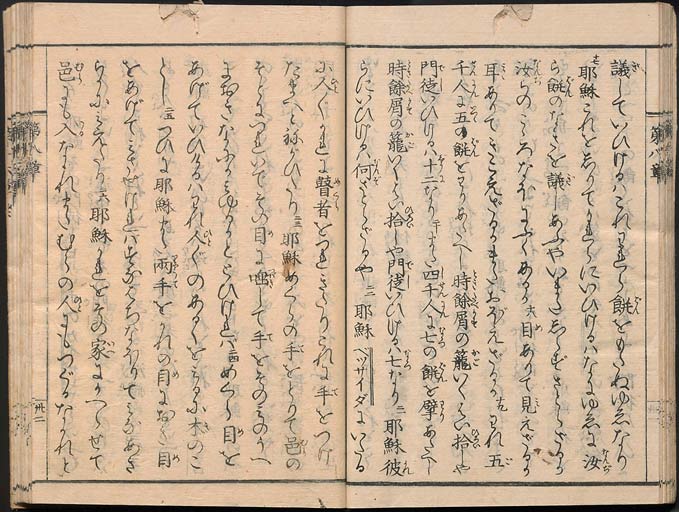 第八章
議していひけるハこれわれら餅をもたぬゆゑなり
七 耶穌これをしりてかれらにいひけるハなにゆゑに汝
ら餅のなきことを議しあふやいまだしらずさとらざるか
汝らのこゝろなほにぶくあるか 六 目ありて見えざるか
耳ありてきこえざるかまたおぼえざるか 九 われ五
千人に五の餅をわりあたへし時餘屑の籠いくつ拾しや
門徒いひけるハ十二なり また四千人に七の餅を擘あたへし
時餘屑の籠いくつ拾しや門徒いひけるハ七なり 二 耶穌彼
らにいひけるハ何ぞさとらざるや 二二 耶穌ベツサイダにいたる
に人〻かれに瞽者をつれきたりこれに手をつけ
たまへとねがひたり 二三 耶穌めくらの手をとりて邑の
そとにつれいでその目に唾して手をそのうへ
におきなにかミゆるかととひければ 二四 めくら目を
あげていひけるハわれ人〻のあるくをミるに木のご
とし 二五 つひに耶穌また両手をかれの目におき目
をあげてミさせければすなはちなほりてミなあき
らかにみえたり 二六 耶穌かれをその家にかへらせて
邑にも入なかれまたむらの人にもつぐるなかれと
卅二